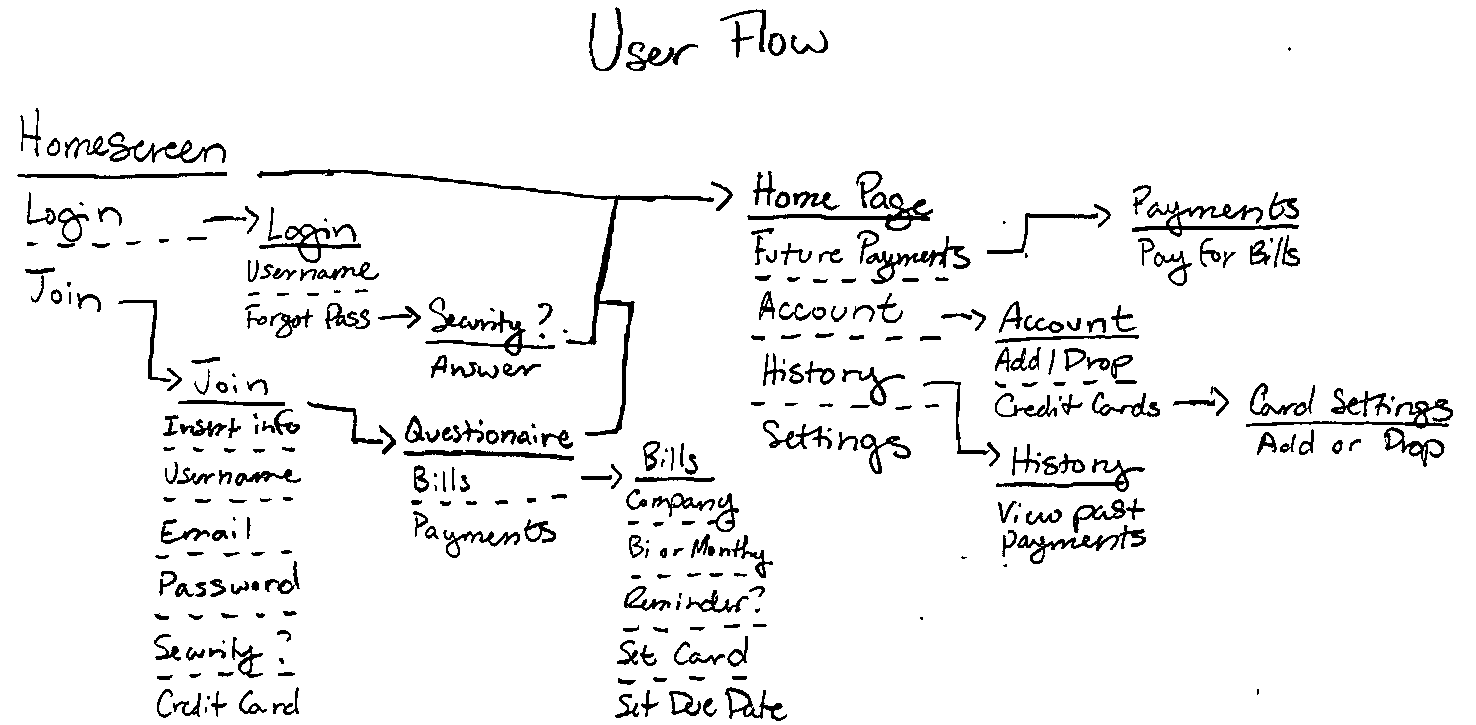 User Flow
Homescreen
Login
Join
Login
Username
Forgot Pass
Security?
Answer
Join
Insrt info
Username
Email
Password
Security?
Credit Card
Questionaire
Bills
Payments
Bills
Company
Bi or Monthy
Reminder?
Set Card
Set Due Date
Home Page
Future Payments
Account
History
Settings
Payments
Pay for Bills
Account
Add/Drop
Credit Cards
Card Settings
Add or Drop
History
View past
payments